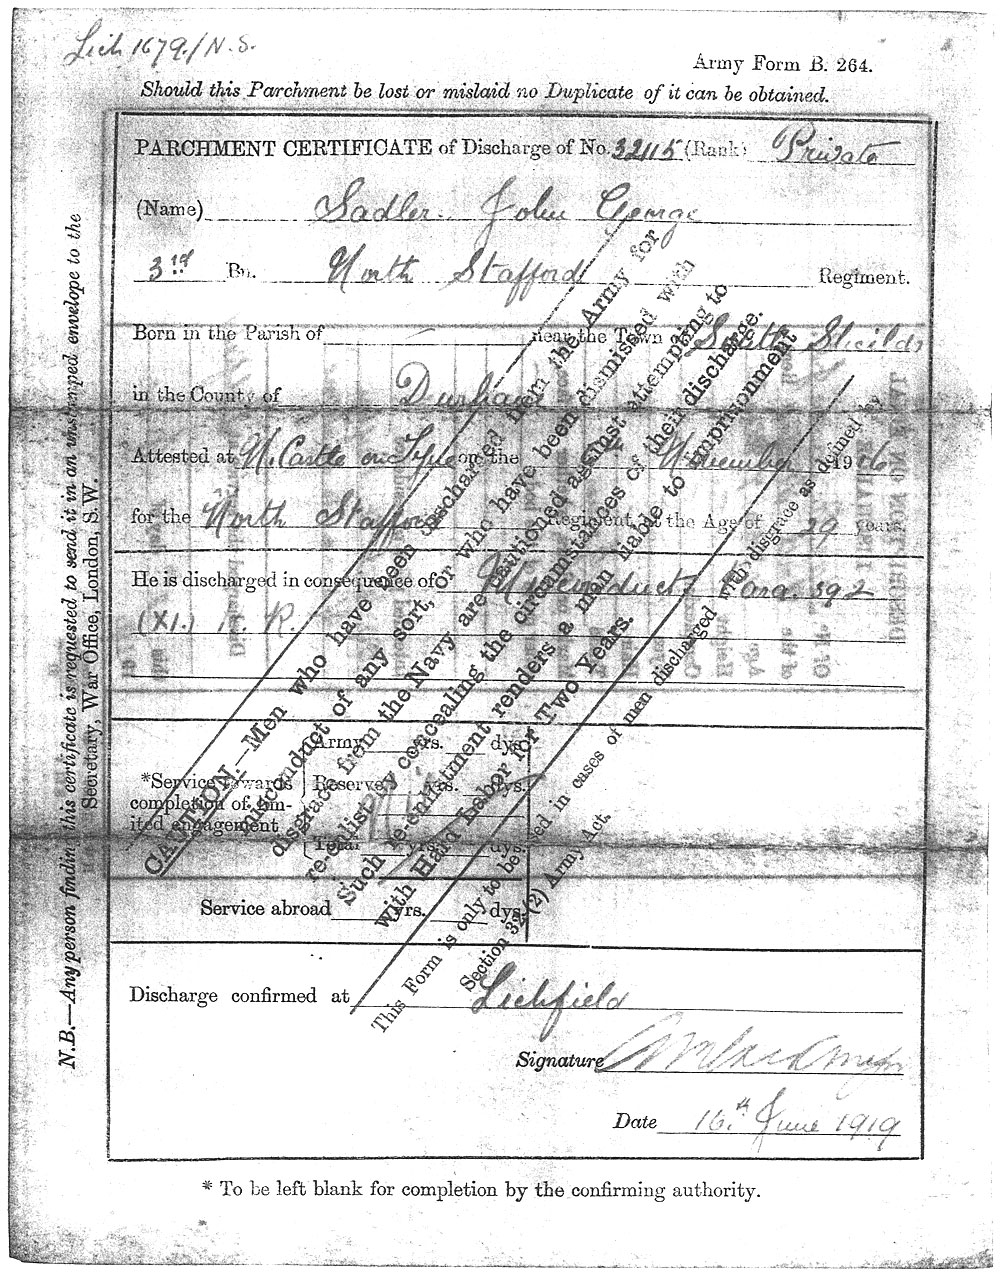 Lich 1679./N.S.
Army Form B. 264.
Should this Parchment be lost or mislaid no Duplicate of it can be obtained.
PARCHMENT CERTIFICATE of Discharge of No. 32115 (Rank) Private
(Name) Sadler John George
3rd Bn. North Stafford Regiment.
Born in the Parish of near the Town of South Shields
in the County of Durham
Attested at N. Castle on Tyne on the November 1916
for the North Stafford Regiment, at the Age of 29 years
He is discharged in consequence of Misconduct Para. 392
(XI.) K. R.
Army yrs. dys.
*Service towards completion of limited engagement
Reserve yrs. dys.
Total yrs. dys.
Service abroad yrs. dys.
Discharge confirmed at Lichfield
Signature
Date 16th June 1919
* To be left blank for completion by the confirming authority.
N.B.—Any person finding this certificate is requested to send it in an unstamped envelope to the
Secretary, War Office, London, S.W.
CAUTION.—Men who have been discharged from the Army for
misconduct of any sort, or who have been dismissed with
disgrace from the Navy are cautioned against attempting to
re-enlist by concealing the circumstances of their discharge.
Such re-enlistment renders a man liable to imprisonment
with Hard Labor for Two Years.
This Form is only to be used in cases of men discharged with disgrace as defined by
Section 32 (2) Army Act.